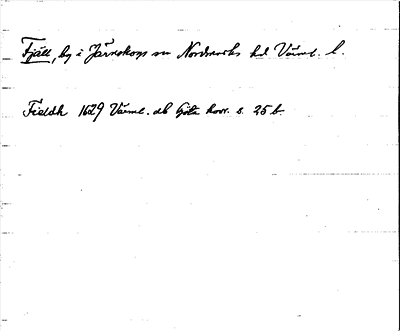 Fjäll, by i Järnskogs sn Nordmarks hd Värml. l.
Fieldh 1629 Värml. db Göta hovr. s. 25 b.